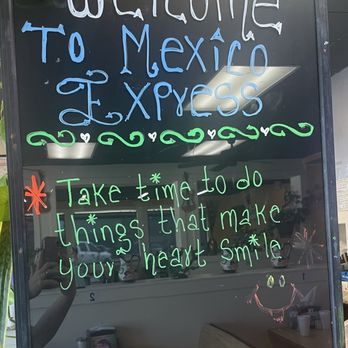 Welcome
To Mexico
Express
* Take time to do
things that make
your heart smile